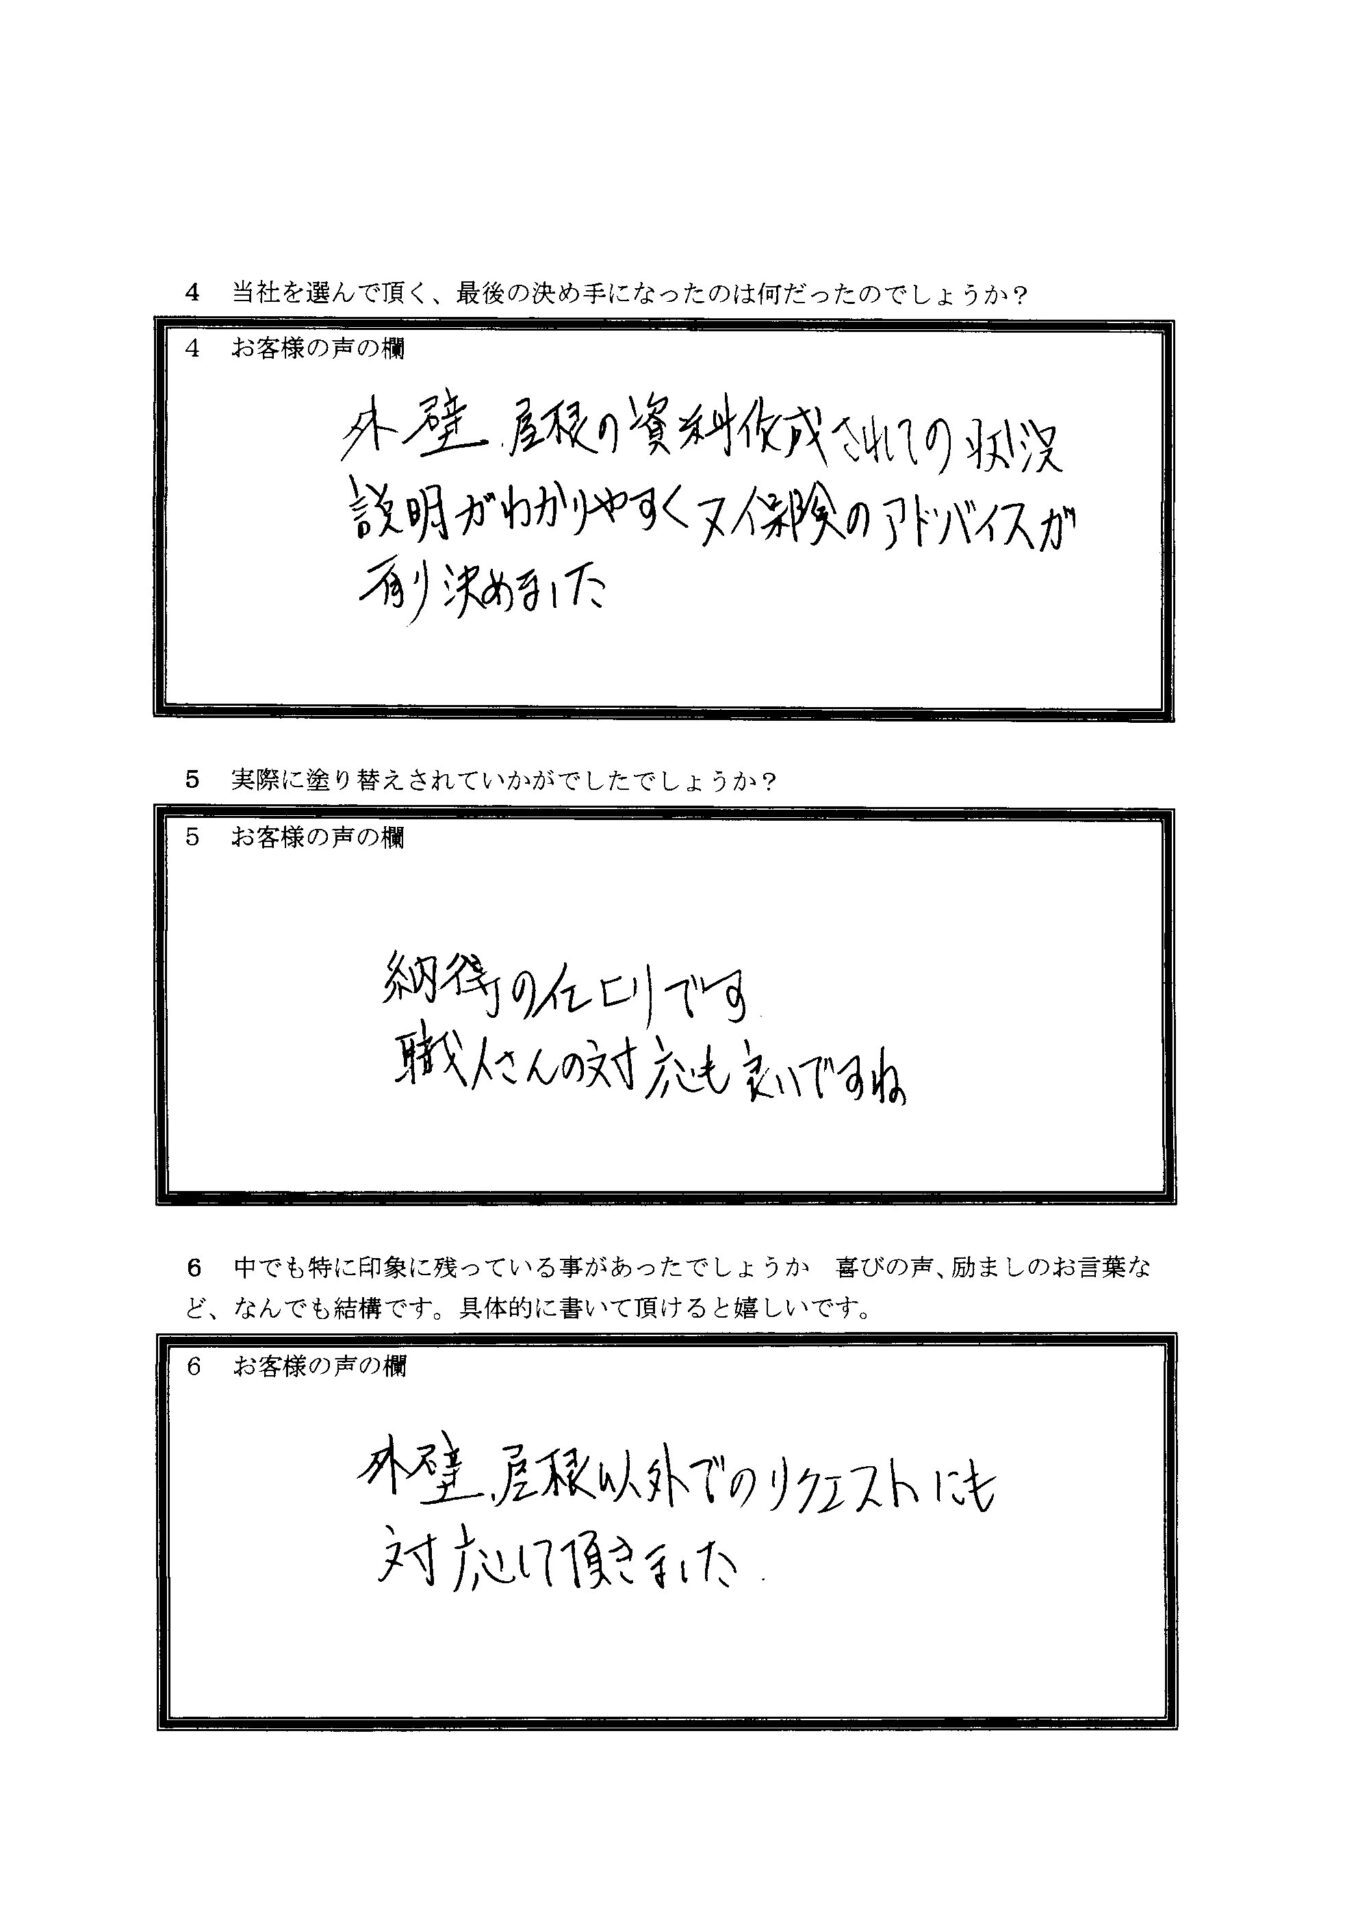 4 当社を選んで頂く、最後の決め手になったのは何だったのでしょうか？
4 お客様の声の欄
外壁、屋根の資料作成されての状況
説明がわかりやすく又保険のアドバイスが
有り決めました
5 実際に塗り替えされていかがでしたでしょうか？
5 お客様の声の欄
納得の仕上りです
職人さんの対応も良いですね
6 中でも特に印象に残っている事があったでしょうか　喜びの声、励ましのお言葉な
ど、なんでも結構です。具体的に書いて頂けると嬉しいです。
6 お客様の声の欄
外壁、屋根以外でのリクエストにも
対応して頂きました。